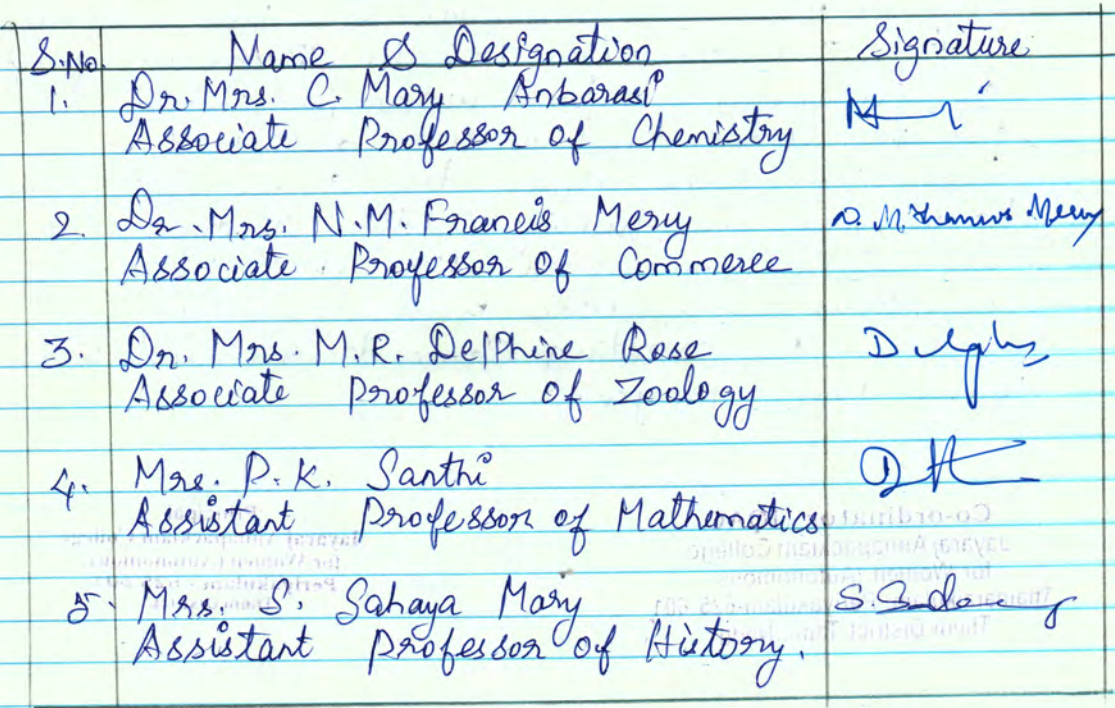 S.No. Name & Designation Signature
1. Dr. Mrs. C. Mary Anbarasi
Associate Professor of Chemistry
2. Dr. Mrs. N.M. Francis Mery N. M. Francis Mery
Associate Professor of Commerce
3. Dr. Mrs. M.R. Delphine Rose
Associate Professor of Zoology
4. Mrs. P.K. Santhi
Assistant Professor of Mathematics
5. Mrs. S. Sahaya Mary
Assistant Professor of History.